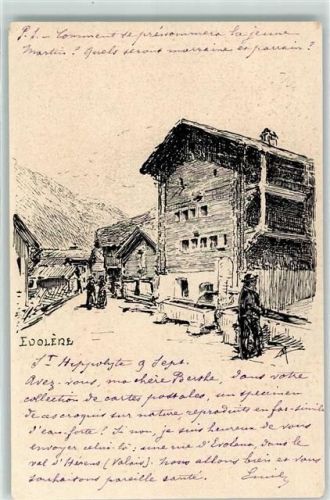 P.S. – Comment se prénommera la jeune
Martin? Quels seront marraine et parrain?
EVOLÈNE
St Hippolyte 9 Sept.
Avez-vous, ma chère Berthe, dans votre
collection de cartes postales, un spécimen
de ces croquis sur nature reproduits en fac-simile
d'eau-forte? Si non, je suis heureuse de vous
envoyer celui-là: une rue d'Evolena, dans le
val d'Hérens (Valais). Nous allons bien et vous
souhaitons pareille santé.
Emily